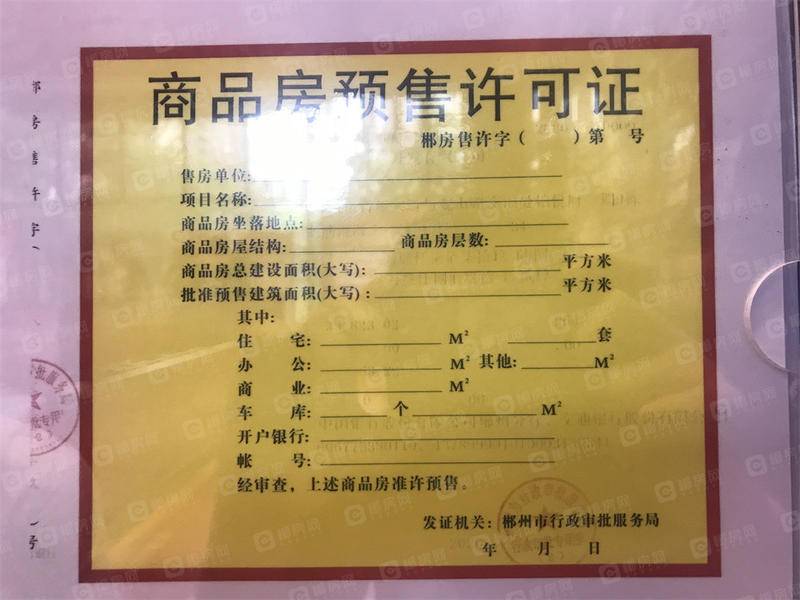 商品房预售许可证
郴房售许字（ ）第 号
售房单位:
项目名称:
商品房坐落地点:
商品房屋结构: 商品房层数:
商品房总建设面积(大写): 平方米
批准预售建筑面积(大写): 平方米
其中:
住 宅: M² 套
办 公: M² 其他: M²
商 业: M²
车 库: 个 M²
开户银行:
帐 号:
经审查，上述商品房准许预售。
发证机关: 郴州市行政审批服务局
年 月 日
房
售
许
字
号
批服务局
郴房网